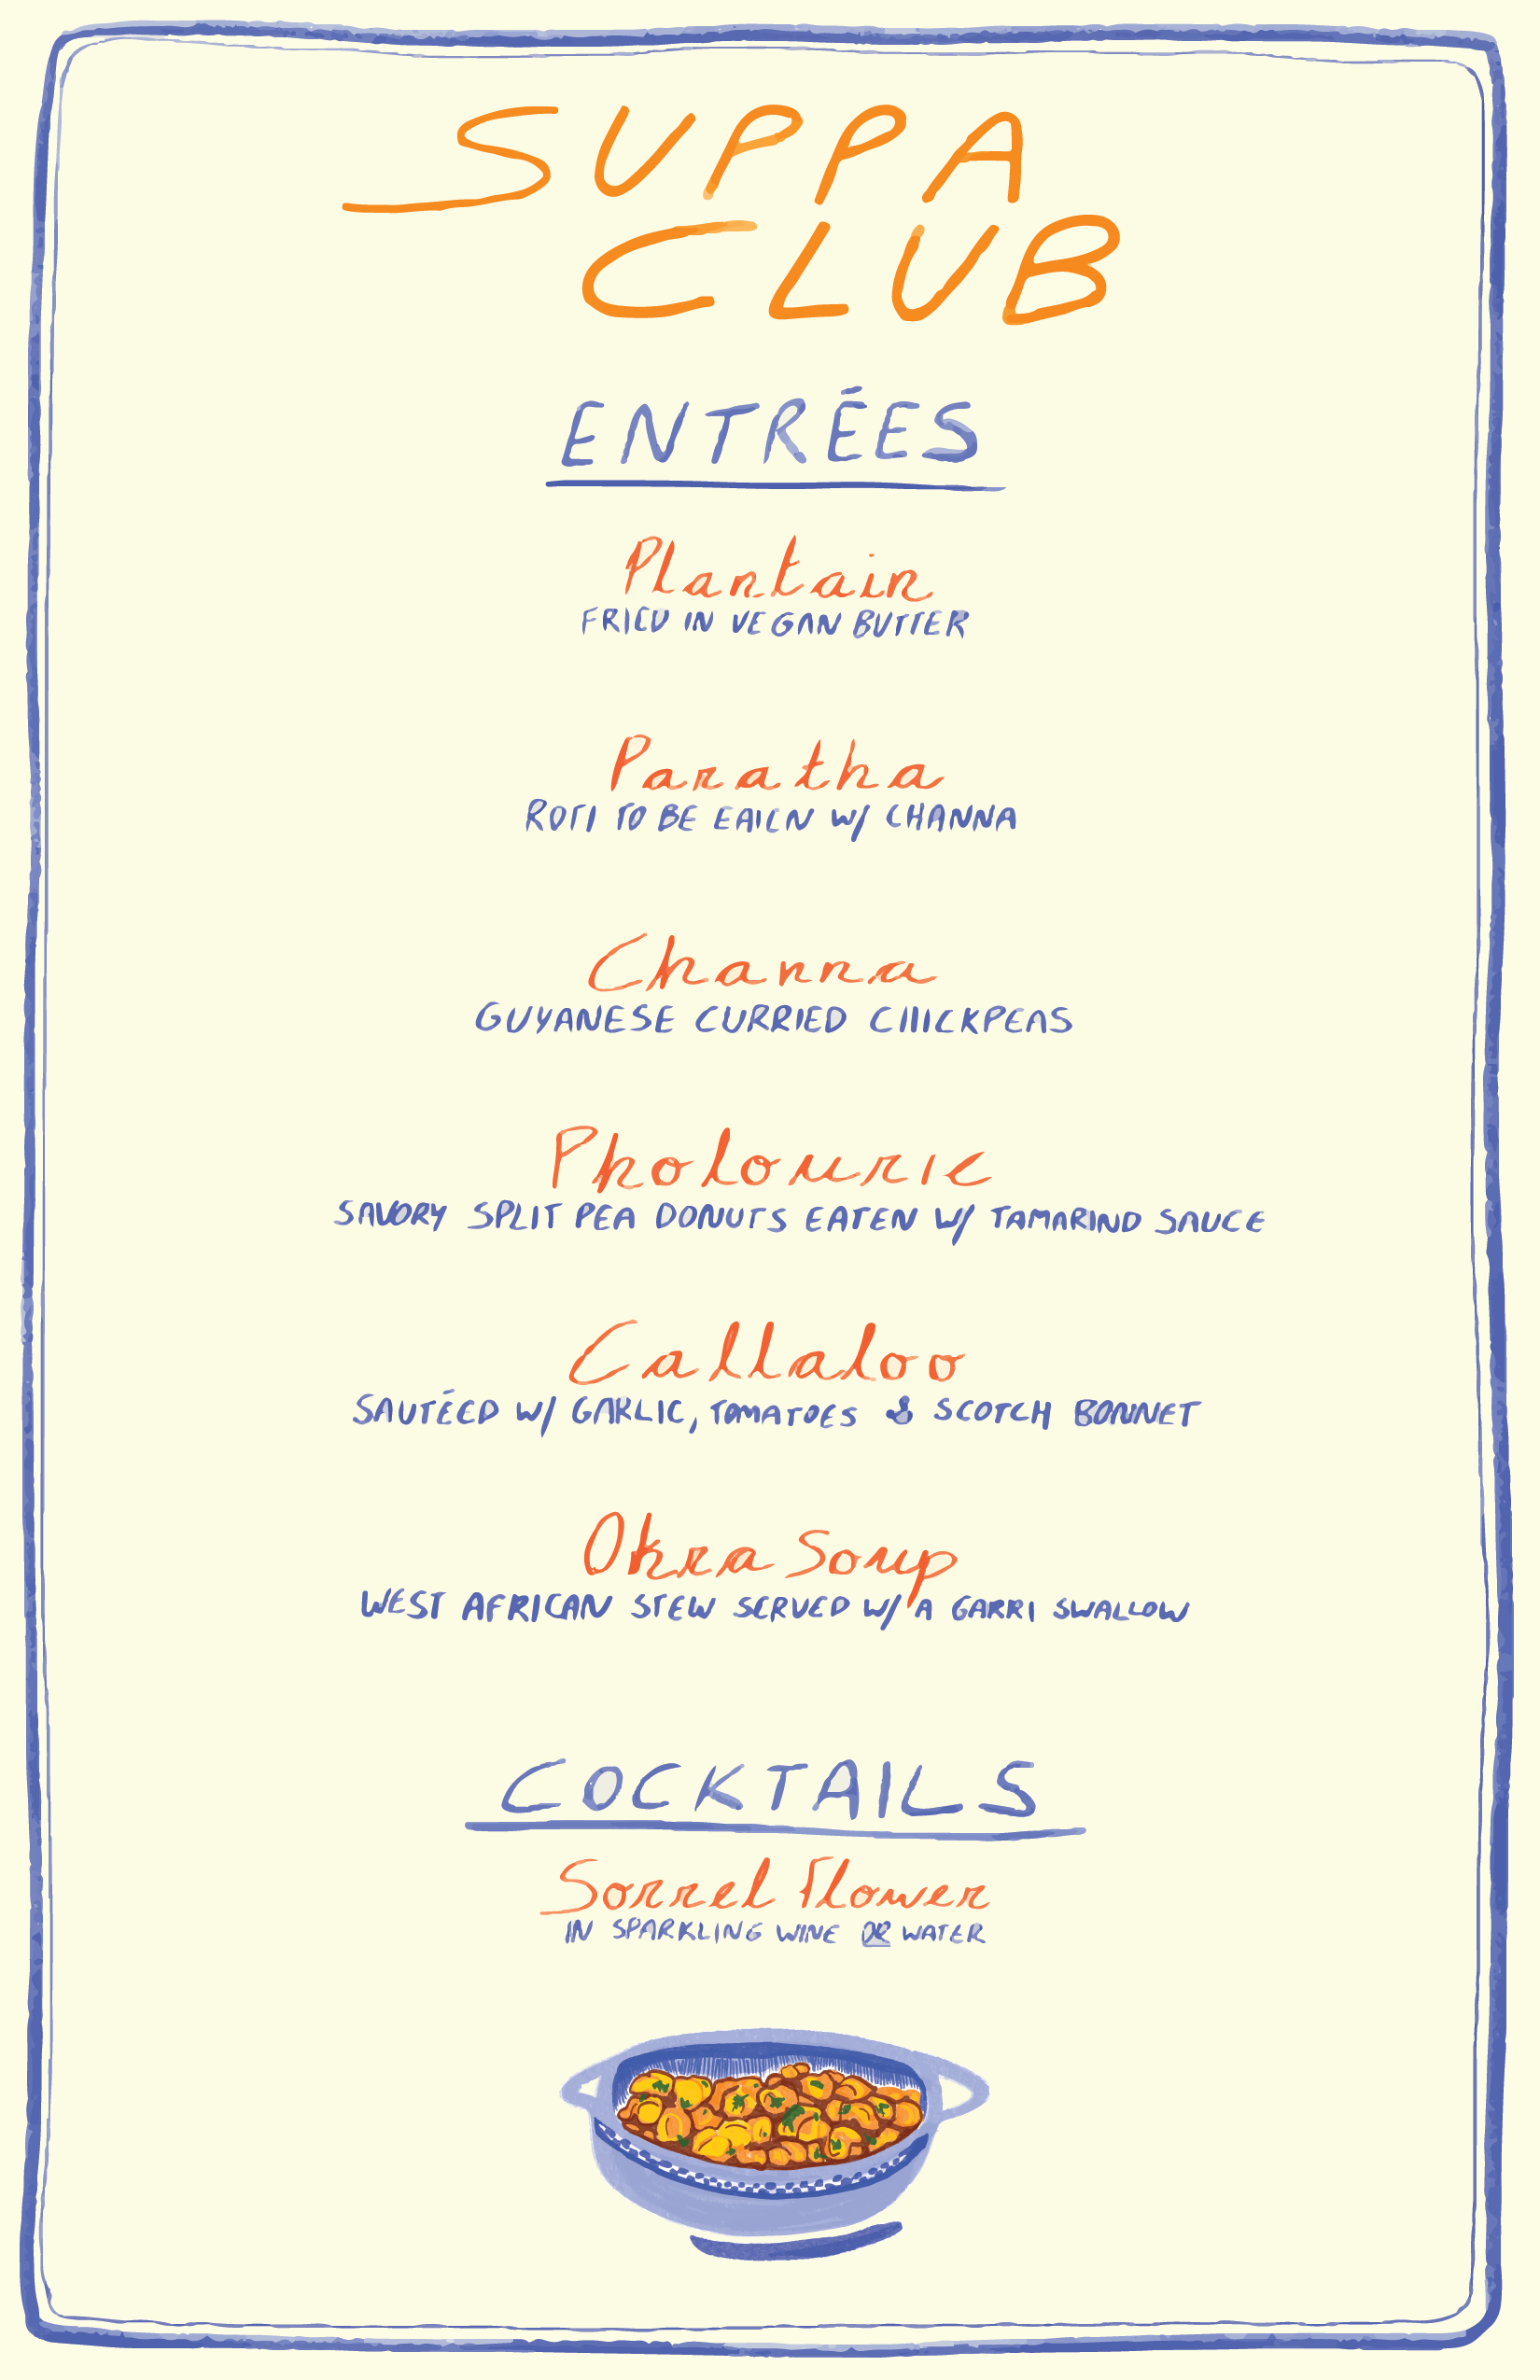 SUPPA
CLUB
ENTRÉES
Plantain
FRIED IN VEGAN BUTTER
Paratha
ROTI TO BE EATEN W/ CHANNA
Channa
GUYANESE CURRIED CHICKPEAS
Pholourie
SAVORY SPLIT PEA DONUTS EATEN W/ TAMARIND SAUCE
Callaloo
SAUTÉED W/ GARLIC, TOMATOES & SCOTCH BONNET
Okra Soup
WEST AFRICAN STEW SERVED W/ A GARRI SWALLOW
COCKTAILS
Sorrel Flower
IN SPARKLING WINE OR WATER